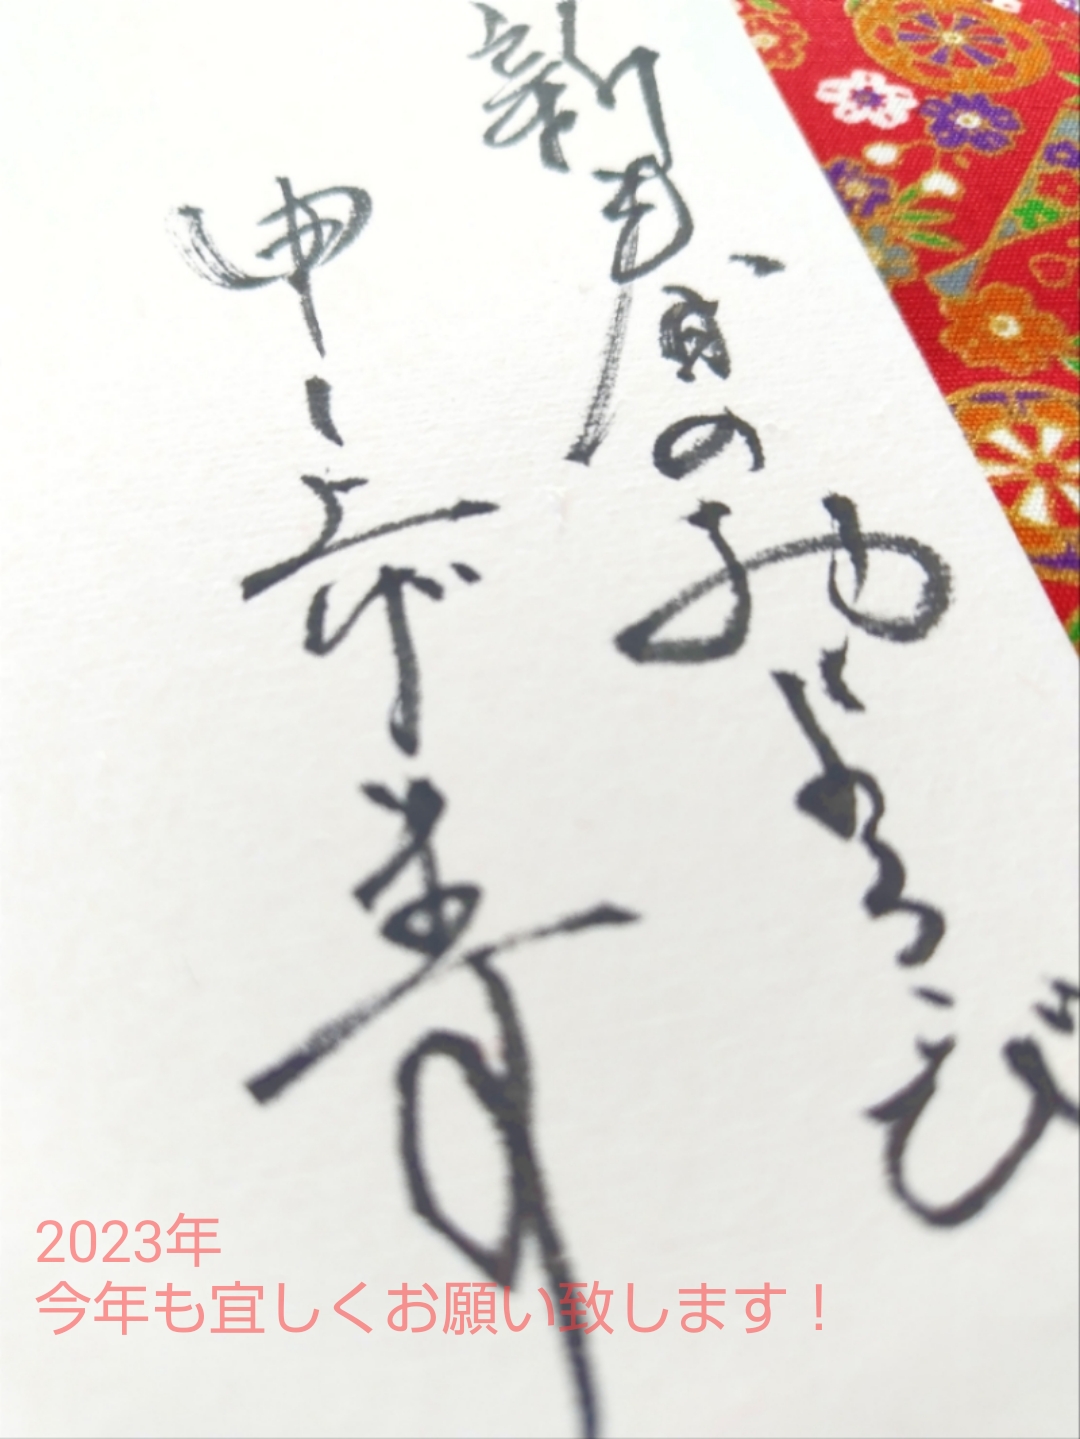 新春のおよろこび
申し上げます
2023年
今年も宜しくお願い致します！